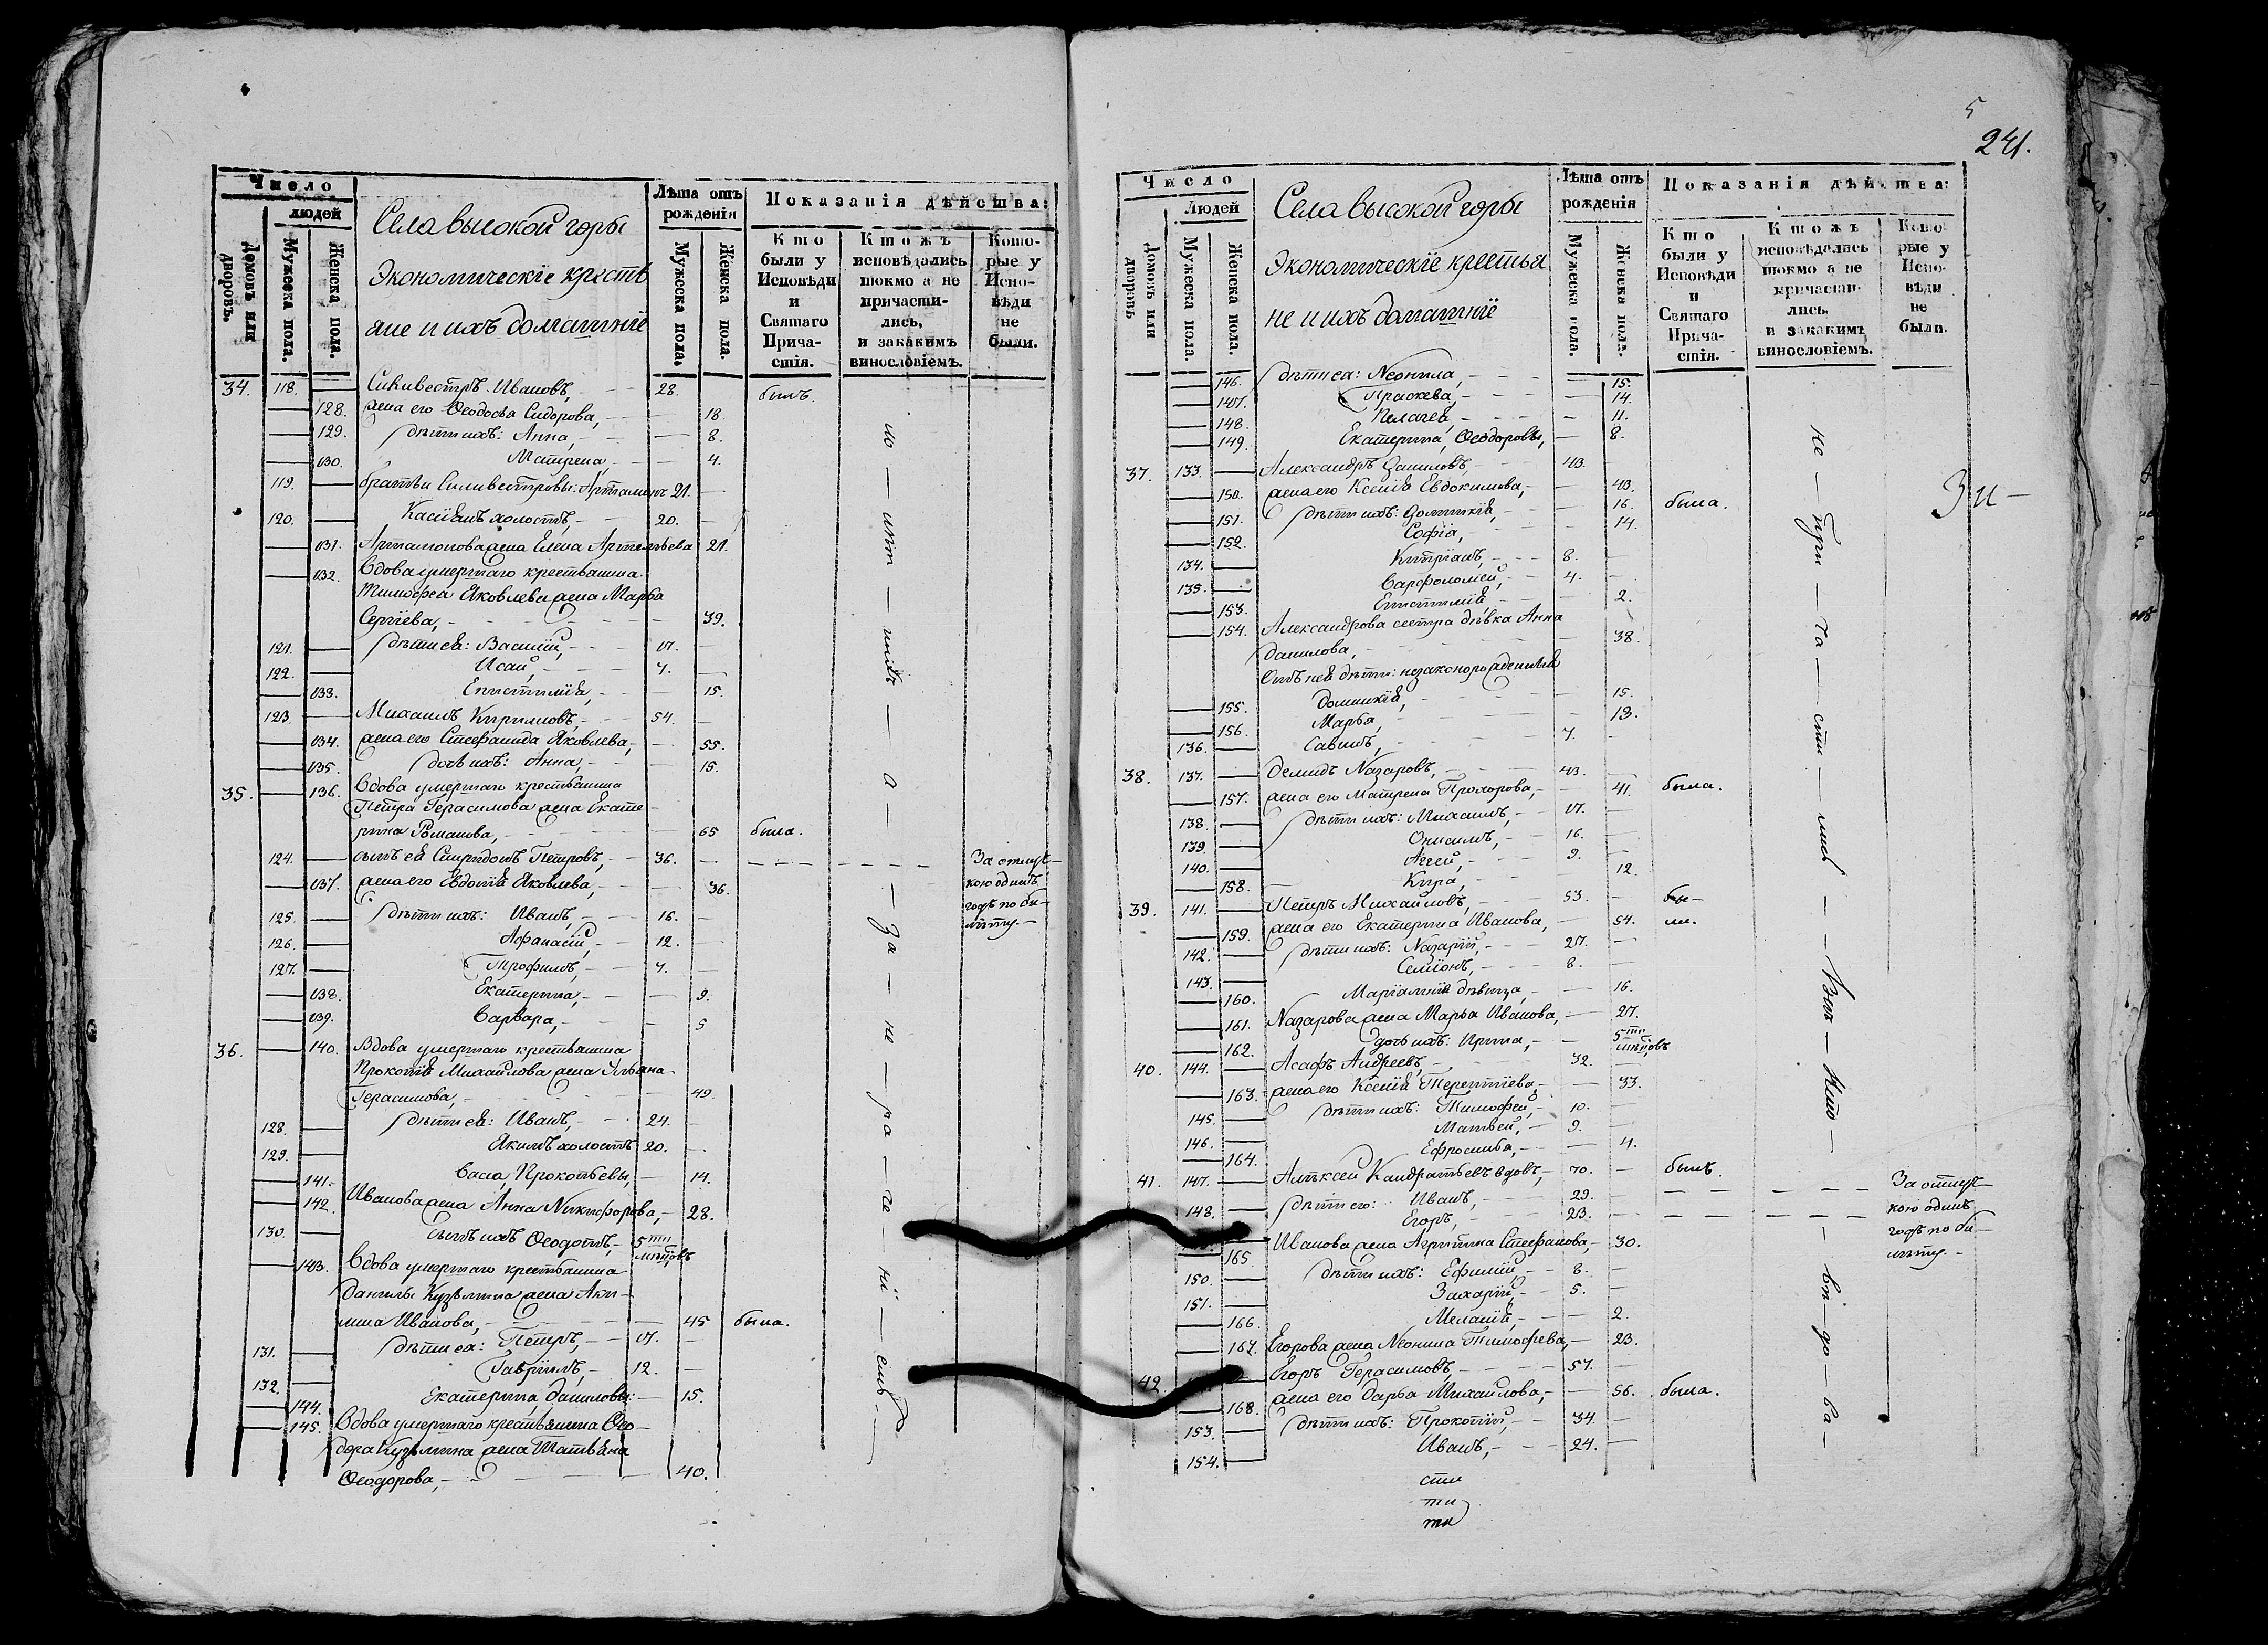 5
241.
Число
людей
Домовъ или дворовъ.
Мужеска пола.
Женска пола.
Села высокой горы
Экономическіе кресть
яне и ихъ домашніе
Лѣта отъ рожденія
Мужеска пола.
Женска пола.
Показанія дѣйства:
Кто были у Исповѣди и Святаго Причастія.
Ктожъ исповѣдались токмо а не причастились, и закакимъ винословіемъ.
Которые у Исповѣди не были.
34. 118. Силивестръ Ивановъ, 28. былъ.
128. жена его Ѳеодосья Сидорова, 18.
129. дѣти ихъ: Анна, 8.
130. Матрена, 4.
119. братья Силивестровы: Артамонъ 21.
120. Касіянъ холостъ, 20.
131. Артамонова жена Елена Артемьева 21.
132. Вдова умершаго крестьянина
Тимофея Яковлева жена Марья
Сергіева, 39.
121. дѣти ея: Василій, 17.
122. Исай, 7.
133. Епистимія, 15.
123. Михаилъ Кириловъ, 54.
134. жена его Стефанида Яковлева, 55.
135. дочь ихъ: Анна, 15.
35. 136. Вдова умершаго крестьянина
Петра Герасимова жена Екате
рина Романова, 65 была.
124. сынъ ея Спиридонъ Петровъ, 36. За отлуч-
137. жена его Евдокія Яковлева, 36. кою одинъ
125. дѣти ихъ: Иванъ, 16. годъ по би-
лету.
126. Афанасій, 12.
127. Трофимъ, 7.
138. Екатерина, 9.
139. Варвара, 5
36. 140. Вдова умершаго крестьянина
Прокопія Михайлова жена Ульяна
Герасимова, 49.
128. дѣти ея: Иванъ, 24.
129. Якимъ холостъ 20.
141. Васса, Прокопьевы, 14.
142. Иванова жена Анна Никифорова, 28.
130. сынъ ихъ Ѳеодотъ, 5ти мѣсцовъ
143. Вдова умершаго крестьянина
Данилы Кузьмина жена Аку-
лина Иванова, 45 была.
131. дѣти ея: Петръ, 17.
132. Гаврилъ, 12.
144. Екатерина, Даниловы: 15.
145. Вдова умершаго крестьянина Ѳео-
дора Кузьмина жена Татьяна
Ѳеодорова, 40.
а — за — не — ра — че — ні — емъ
Число
Людей
Домовъ или дворовъ
Мужеска пола.
Женска пола.
Села высокой горы
Экономическіе крестья
не и ихъ домашніе
Лѣта отъ рожденія
Мужеска пола.
Женска пола.
Показанія дѣйства:
Кто были у Исповѣди и Святаго Причастія.
Ктожъ исповѣдались токмо а не причастились, и закакимъ винословіемъ.
Которые у Исповѣди не были.
146. дѣти ея: Неонила, 15.
147. Праскева, 14.
148. Пелагея, 11.
149. Екатерина, Ѳеодоровы, 8.
37. 133. Александръ Даниловъ, 43.
150. жена его Ксенія Евдокимова, 43.
151. дѣти ихъ: Домникія, 16. была.
152. Софія, 14.
134. Кипріанъ, 8.
135. Варфоломей, 4.
153. Епистимія 2.
154. Александрова сестра дѣвка Анна
Данилова, 38.
Сынъ нея дѣти: незаконорожденныя
155. Домникія, 15.
156. Марья, 13.
136. Савинъ, 7.
38. 137. Демидъ Назаровъ, 43.
157. жена его Матрена Прохорова, 41. была.
138. дѣти ихъ: Михаилъ, 17.
139. Онисимъ, 16.
140. Аггей, 9.
158. Кира, 12.
39. 141. Петръ Михайловъ, 53. бы-
159. жена его Екатерина Иванова, 54. ли.
142. дѣти ихъ: Назарій, 27.
143. Семіонъ, 8.
160. Маріамнія дѣвица, 16.
161. Назарова жена Марья Иванова, 27.
162. дочь ихъ: Ирина, 5ти мѣсцовъ
40. 144. Асафъ Андреевъ, 32.
163. жена его Ксенія Терентіева, 33.
145. дѣти ихъ: Тимофей, 10.
146. Матвей, 9.
164. Ефросинья, 4.
41. 147. Алѣксей Кандратьевъ вдовъ, 70. былъ.
148. дѣти его: Иванъ, 29. За отлуч-
Егоръ, 23. кою одинъ
165. Иванова жена Агрипина Стефанова, 30. годъ по би-
150. дѣти ихъ: Ефимій, 8. лету.
151. Захарій, 5.
166. Меланія, 2.
167. Егорова жена Неонила Тимофеева, 23.
42. Егоръ Герасимовъ, 57.
168. жена его Дарья Михайлова, 56. была.
153. дѣти ихъ: Прокопій, 34.
154. Иванъ, 24.
не — при — ча — сти — лись